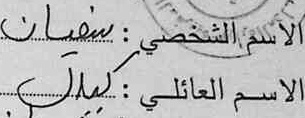 الاسم الشخصي : سفيان
الاسم العائلي :